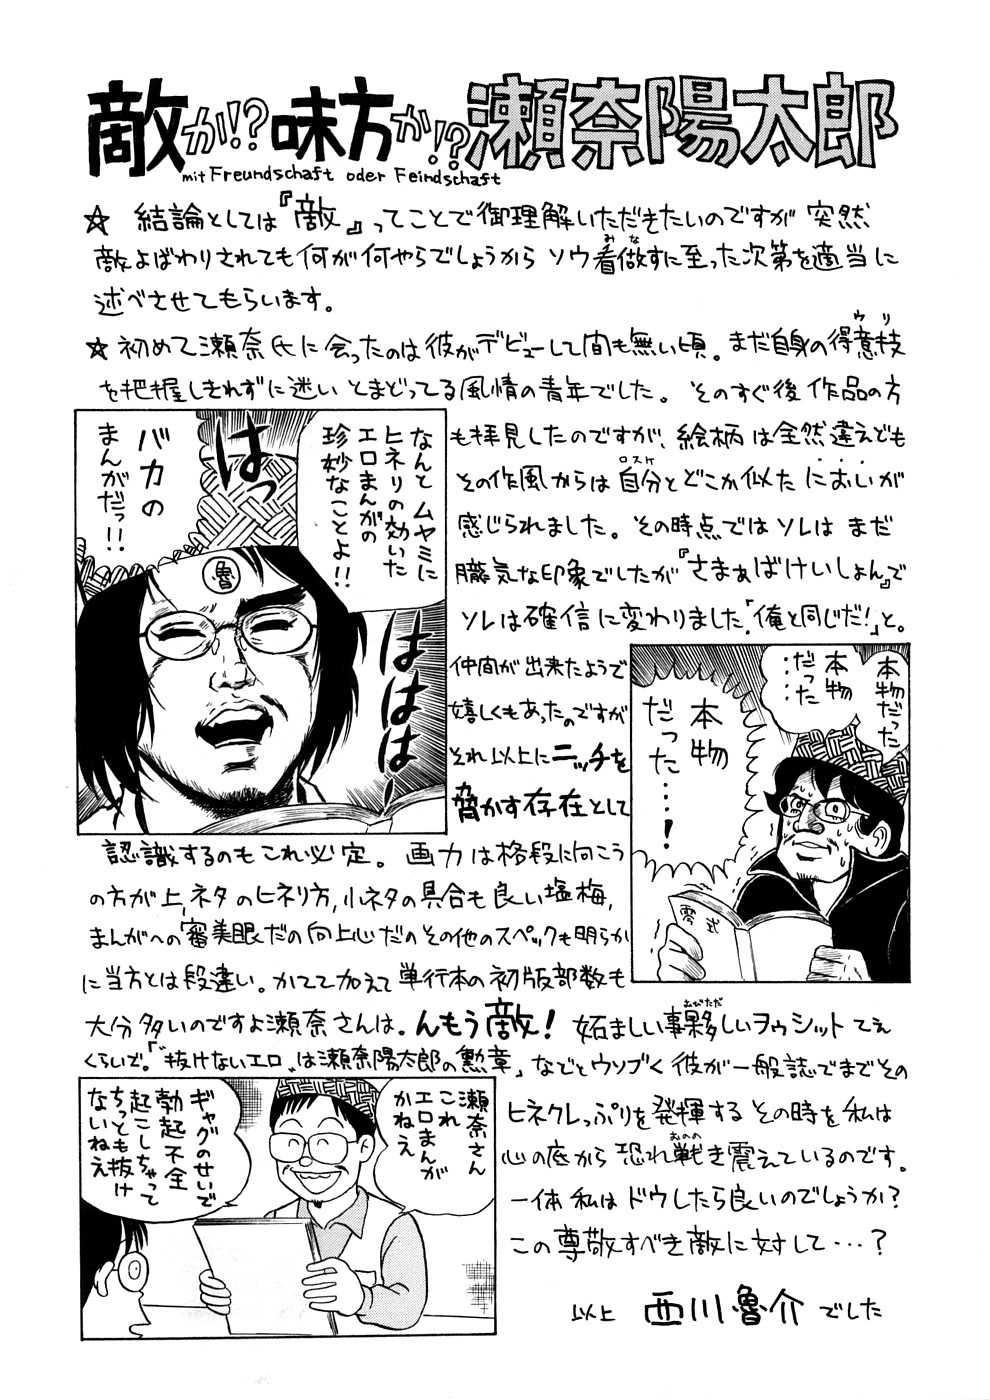 敵か!?味方か!?瀬奈陽太郎
mit Freundschaft oder Feindschaft
☆ 結論としては『敵』ってことで御理解いただきたいのですが 突然
敵よばわりされても何が何やらでしょうから ソウ看做すに至った次第を適当に
みな
述べさせてもらいます。
☆初めて瀬奈氏に会ったのは彼がデビューして間も無い頃。まだ自身の得意技
ウリ
を把握しきれずに迷い とまどってる風情の青年でした。そのすぐ後 作品の方
も拝見したのですが、絵柄は全然違えども
その作風からは自分とどこか似たにおいが
ロスケ
感じられました。その時点ではソレはまだ
朧気な印象でしたが『さまぁばけいしょん』で
ソレは確信に変わりました「俺と同じだ!」と。
なんとムヤミに
ヒネリの効いた
エロまんがの
珍妙なことよ!!
はっ
バカの
まんがだっ!!
魯
ははは
仲間が出来たようで
嬉しくもあったのですが
それ以上にニッチを
脅かす存在として
本物だった
本物
だった……
本物
だった……!
零式
認識するのもこれ必定。画力は格段に向こう
の方が上、ネタのヒネリ方,小ネタの具合も良い塩梅,
まんがへの審美眼だの向上心だのその他のスペックも明らか
に当方とは段違い。かてて加えて単行本の初版部数も
大分多いのですよ瀬奈さんは。んもう敵! 妬ましい事夥しいヲゥシットてえ
おびただ
くらいで。「〝抜けないエロ〟は瀬奈陽太郎の勲章」などとウソブく彼が一般誌でまでその
ヒネクレっぷりを発揮するその時を私は
心の底から恐れ戦き震えているのです。
おのの
一体私はドウしたら良いのでしょうか?
この尊敬すべき敵に対して…?
瀬奈さん
これ
エロまんが
かねえ
ギャグのせいで
勃起不全
起こしちゃって
ちっとも抜け
ないねえ
以上 西川魯介でした